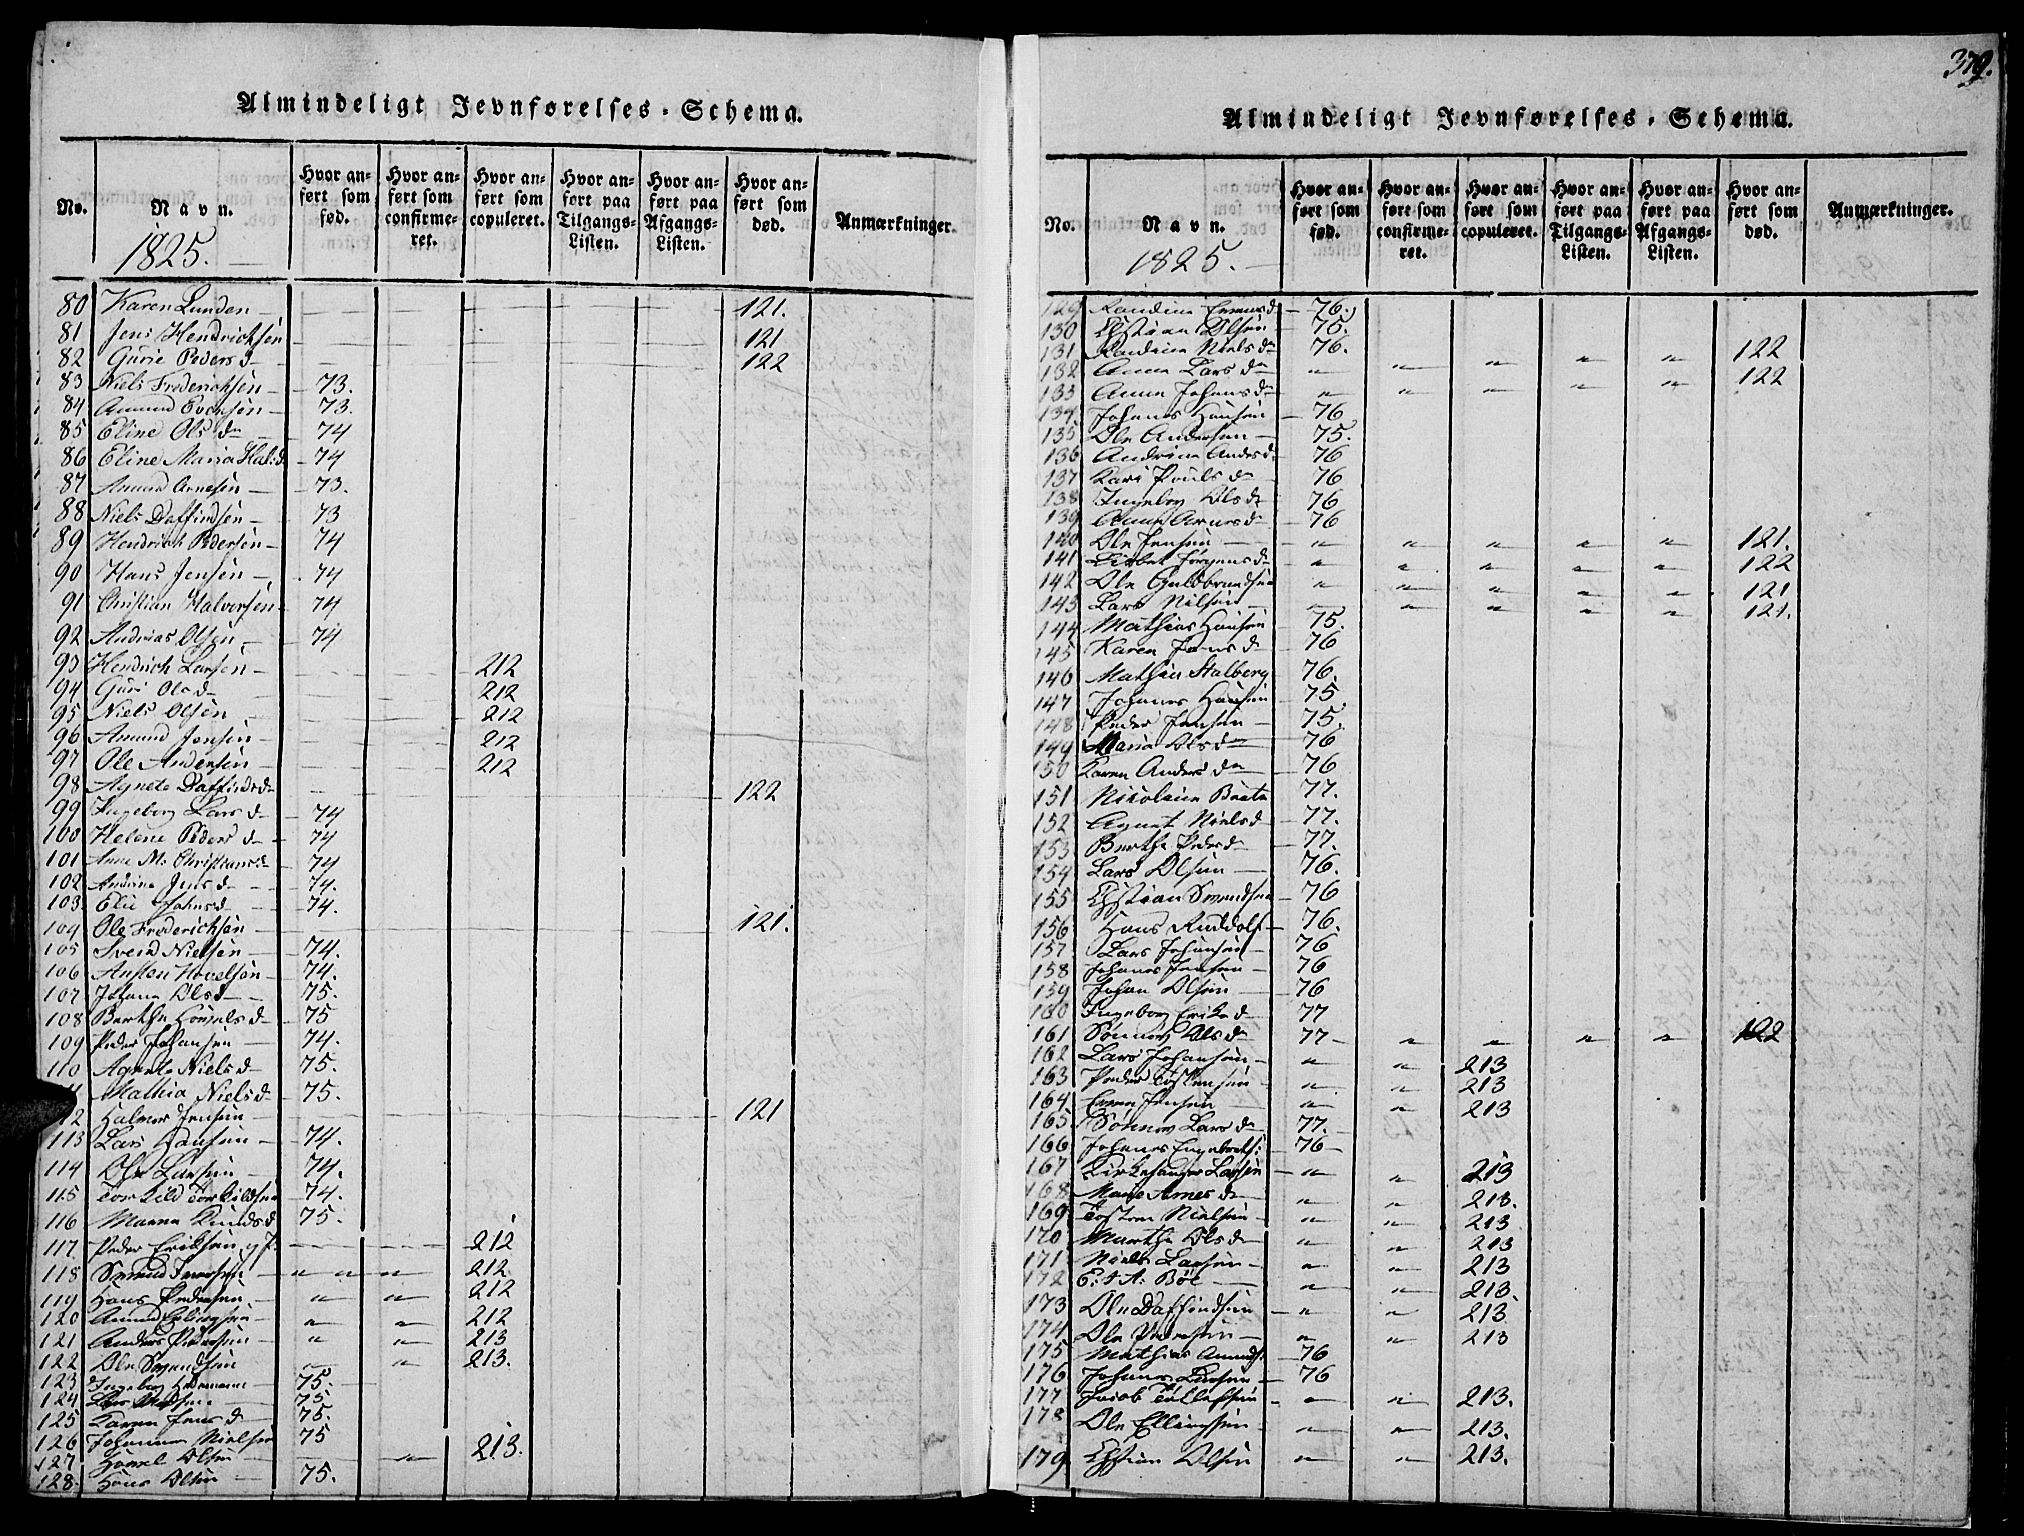 379.
Almindeligt Jevnførelses-Schema.
No. Navn. Hvor anført som fød. Hvor anført som confirmeret. Hvor anført som copuleret. Hvor anført paa Tilgangs-Listen. Hvor anført paa Afgangs-Listen. Hvor anført som død. Anmærkninger.
1825.
80 Karen Lunden 121.
81 Jens Hendrichsen 121
82 Gurie Peders d 122
83 Niels Frederichsen 73.
84 Amund Evensen 73.
85 Eline Ols dr 74
86 Eline Maria Hal:d 74
87 Amund Arnesen 73.
88 Niels Daffindsen 73
89 Hendrich Pedersen 74
90 Hans Jensen 74
91 Christian Halvorsen 74
92 Andreas Olsen 74
93 Hendrich Larsen 212
94 Guri Ols d 212
95 Niels Olsen 212
96 Amund Jensen 212
97 Ole Andersen 212
98 Agnete Daffinds d 122
99 Ingeborg Lars d 74
100 Helene Peders d 74
101 Anne M: Christians d 74
102 Andrine Jens d 74.
103. Elie Johns d 74.
104 Ole Frederichsen 121.
105 Svend Nielsen 74.
106 Austen Hovelsen 74.
107 Johana Ols d 75.
108 Berthe Hovels d 75
109 Peder Johansen 74.
110 Agnete Niels d 75.
Mathia Niels d 75.
12 Halvor Jensen 121
113 Lars Hansen 74.
114 Ole Larsen 74.
115 Torkild Torkildsen 74.
116 Maren Knuds d 75.
117 Peder Eriksen 212
118 Svend 212
119 Hans Pedersen 212
120 Amund 212
121 Anders Pedersen 213
122 Ole 213.
123 Ingeborg 75.
124 Lars 75
125 Karen Jens d 75.
126 Johannes Nielsen 75
127 Hovel Olsen 213.
128. Hans Olsen 75.
Almindeligt Jevnførelses-Schema.
No. Navn. Hvor anført som fød. Hvor anført som confirmeret. Hvor anført som copuleret. Hvor anført paa Tilgangs-Listen. Hvor anført paa Afgangs-Listen. Hvor anført som død. Anmærkninger.
1825.
129 Randine d 76.
130 Christian Olsen 75.
131 Randine Niels dr 76.
132 Anne Lars dr " " " " " 122
133 Anne Johans dr " " " " " 122
134 Johannes Hansen 76
135 Ole Andersen 75.
136 Andrine Anders d 76
137 Kari Pouls dr 76
138 Ingeborg Ols dr 76
139 Anne Arnes d 76
140 Ole Jensen " " " " " 121.
141 Lisbet Jørgens d " " " " " 122
142 Ole Guldbrandsen " " " " " 121
143 Lars Nilsen " " " " " 121.
144 Mathias Hansen 75.
145 Karen Jens d 76
146 Mathias Stalberg 76.
147 Johannes Hansen 75
148 Peder Jensen 75.
149 Maria Ols dr 76
150 Karen Anders dr 76
151 Nikoleine Beate 77.
152 Agnet Niels d 77.
153 Berthe Peders d 77.
154 Lars Olsen 76.
155 Christian 76
156 Hans Ruddolf 76.
157 Lars Johansen 76
158 Johannes Jensen 76
159 Johan Olsen 76
160 Ingeborg Eriks d 77
161 Sønnev Ols d 77 " " " " 122
162 Lars Johansen " " 213
163 Peder Tostensen " " 213
164 Jensen " " 213
165 Sønnev Lars d 77.
166 Johannes Engebretts: 76
167 Kirkesanger Larsen " " 213
168 Marie Arnes d " " 213.
169 Tosten Nielsen " " 213
170 Marthe Ols d " " 213
171 Niels Larsen " " 213
172 E: & A: Böe " " 213.
173 Ole Daffindsen " " 213
174 Ole Pedersen " " 213
175 Mathias Amunds: 76
176 Johannes Larsen 76
177 Jacob Tollefsen " " 213.
178 Ole Ellingsen " " 213.
179 Christian Olsen " " 213.